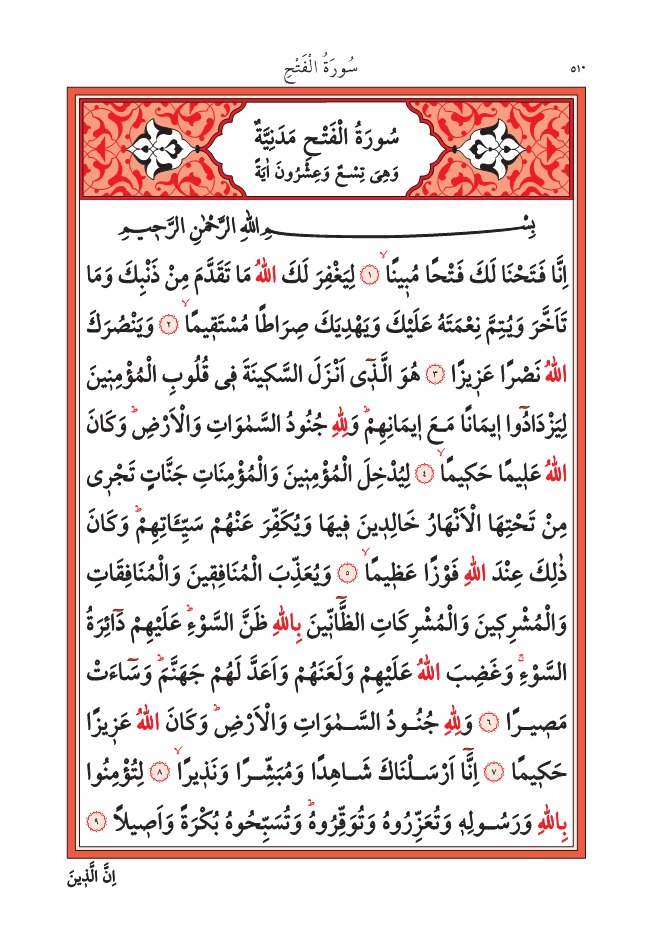 ٥١٠
سُورَةُ الْفَتْحِ
سُورَةُ الْفَتْحِ مَدَنِيَّةٌ
وَهِىَ تِسْعٌ وَعِشْرُونَ اٰيَةً
بِسْمِ اللهِ الرَّحْمٰنِ الرَّح۪يمِ
اِنَّا فَتَحْنَا لَكَ فَتْحًا مُب۪ينًاۙ ﴿١﴾ لِيَغْفِرَ لَكَ اللهُ مَا تَقَدَّمَ مِنْ ذَنْبِكَ وَمَا
تَاَخَّرَ وَيُتِمَّ نِعْمَتَهُ عَلَيْكَ وَيَهْدِيَكَ صِرَاطًا مُسْتَق۪يمًاۙ ﴿٢﴾ وَيَنْصُرَكَ
اللهُ نَصْرًا عَز۪يزًا ﴿٣﴾ هُوَ الَّذ۪ٓى اَنْزَلَ السَّك۪ينَةَ ف۪ى قُلُوبِ الْمُؤْمِن۪ينَ
لِيَزْدَادُٓوا ا۪يمَانًا مَعَ ا۪يمَانِهِمْۜ وَلِلهِ جُنُودُ السَّمٰوَاتِ وَالْاَرْضِۜ وَكَانَ
اللهُ عَل۪يمًا حَك۪يمًاۙ ﴿٤﴾ لِيُدْخِلَ الْمُؤْمِن۪ينَ وَالْمُؤْمِنَاتِ جَنَّاتٍ تَجْر۪ى
مِنْ تَحْتِهَا الْاَنْهَارُ خَالِد۪ينَ ف۪يهَا وَيُكَفِّرَ عَنْهُمْ سَيِّـَٔاتِهِمْۜ وَكَانَ
ذٰلِكَ عِنْدَ اللهِ فَوْزًا عَظ۪يمًاۙ ﴿٥﴾ وَيُعَذِّبَ الْمُنَافِق۪ينَ وَالْمُنَافِقَاتِ
وَالْمُشْرِك۪ينَ وَالْمُشْرِكَاتِ الظَّٓانّ۪ينَ بِاللهِ ظَنَّ السَّوْءِۜ عَلَيْهِمْ دَٓائِرَةُ
السَّوْءِۚ وَغَضِبَ اللهُ عَلَيْهِمْ وَلَعَنَهُمْ وَاَعَدَّ لَهُمْ جَهَنَّمَۜ وَسَٓاءَتْ
مَص۪يرًا ﴿٦﴾ وَلِلهِ جُنُودُ السَّمٰوَاتِ وَالْاَرْضِۜ وَكَانَ اللهُ عَز۪يزًا
حَك۪يمًا ﴿٧﴾ اِنَّٓا اَرْسَلْنَاكَ شَاهِدًا وَمُبَشِّرًا وَنَذ۪يرًاۙ ﴿٨﴾ لِتُؤْمِنُوا
بِاللهِ وَرَسُولِه۪ وَتُعَزِّرُوهُ وَتُوَقِّرُوهُۜ وَتُسَبِّحُوهُ بُكْرَةً وَاَص۪يلًا ﴿٩﴾
اِنَّ الَّذ۪ينَ